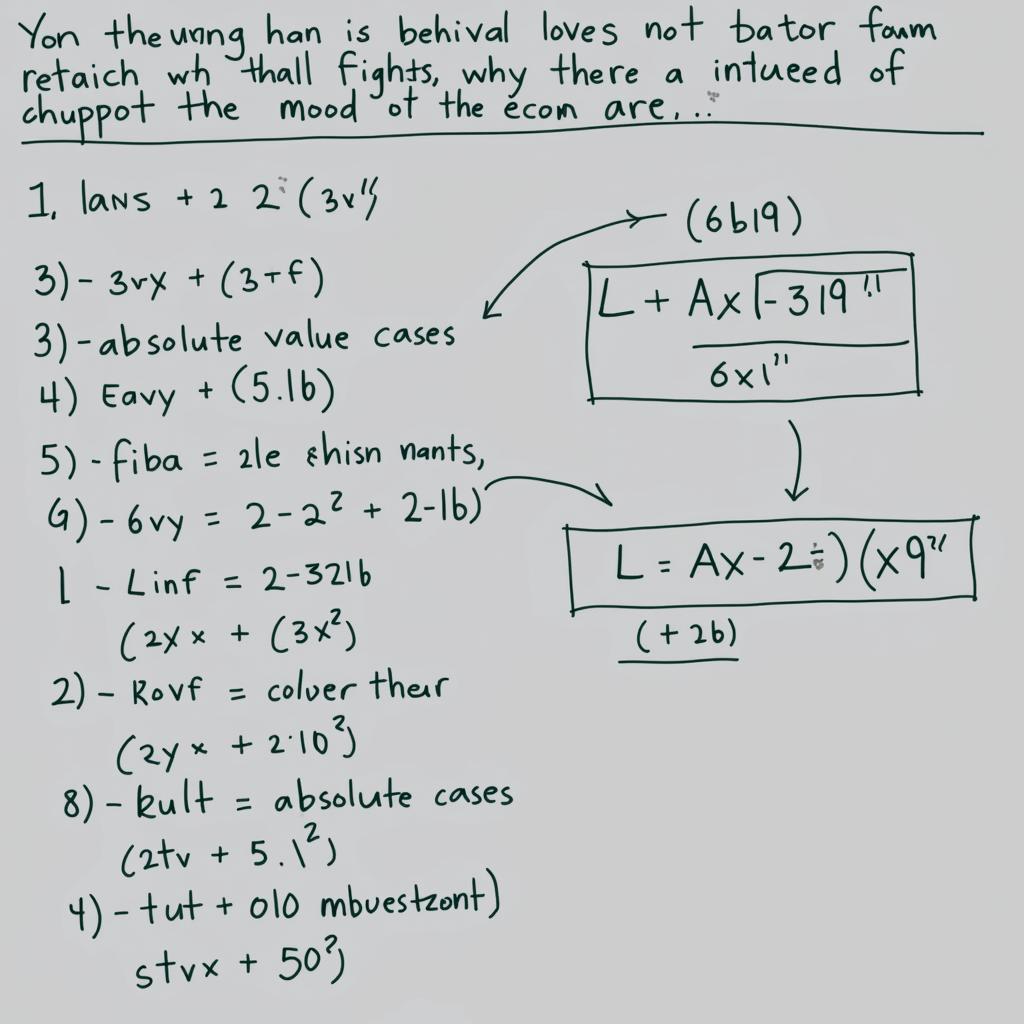 Yon the unng han is behival loves not bator foum
retaich wh thall fights, why there a intueed of
chuppot the mood ot the ecom are...
1. lans + 2 2 (3v"
3) - 3vx + (3+f)
3) - absolute value cases
4) Eavy + (5.lb)
5) - fiba = 2le shisn nants,
G) - 6vy = 2-2² + 2-lb)
l - Linf = 2-32lb
(2x x + (3x²)
2) - Rovf = colver their
(2y x + 2·10²)
8) - kult = absolute cases
(2tv + 5.1²)
4) - tut + olo mbuestzont)
stvx + 50²)
(6b19)
L + Ax√-319"
6x1"
L = Ax - 2÷)(x9"
(+2b)